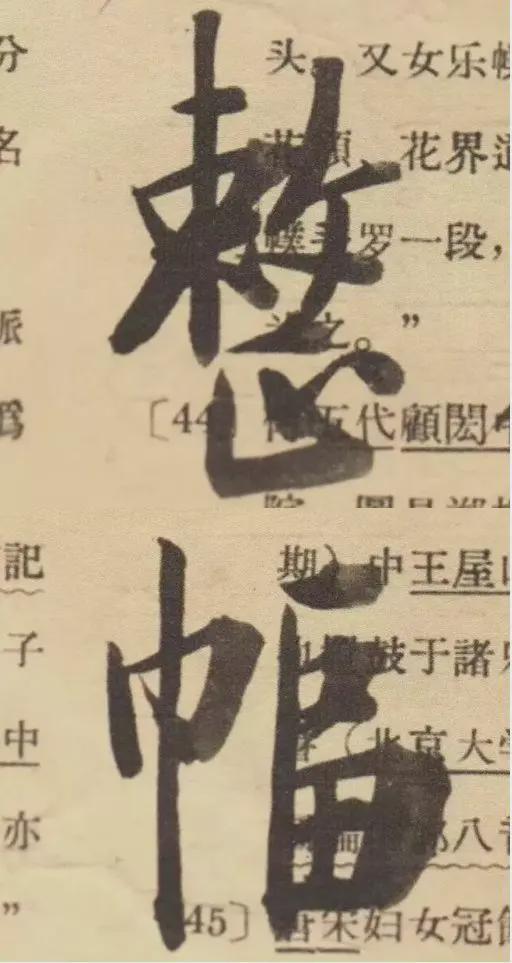 整
幅
分
名
派
爲
記
子
中
亦
”
头 又女乐
花 花界
罗一段，
之。”
〔44 五代顧閎
期）中王屋
鼓于諸
（北京大学
八
45〕唐宋妇女冠